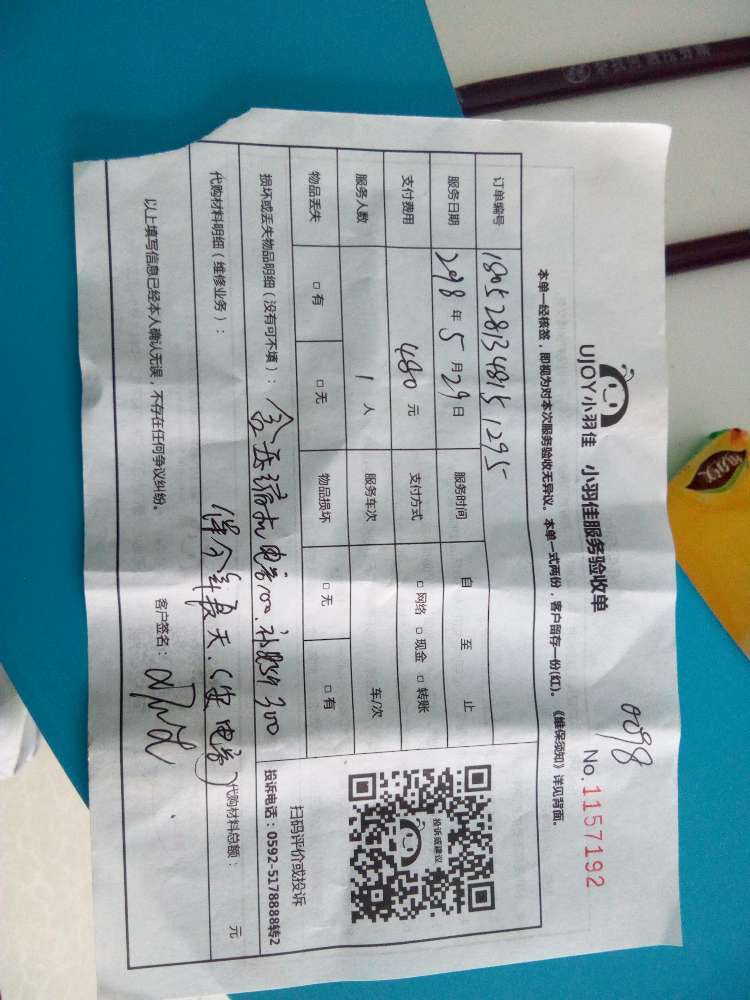 0098
UJOY小羽佳 小羽佳服务验收单
No.1157192
本单一经核签，即视为对本次服务验收无异议。本单一式两份，客户留存一份(红)。《维保须知》详见背面。
订单编号 180528134815 1295
服务日期 2018年5月29日 服务时间 自 至 止
支付费用 480元 支付方式 □网络 □现金 □转账
服务人数 1人 服务车次 车/次
物品丢失 □有 □无 物品损坏 □无 □有
投诉或建议
扫码评价或投诉
投诉电话：0592-5178888转2
损坏或丢失物品明细（没有可不填）： 含压缩机电容100.补贴外300
代购材料明细（维修业务）： 保今年夏天.(生电容) 代购材料总额： 元
以上填写信息已经本人确认无误，不存在任何争议纠纷。 客户签名：